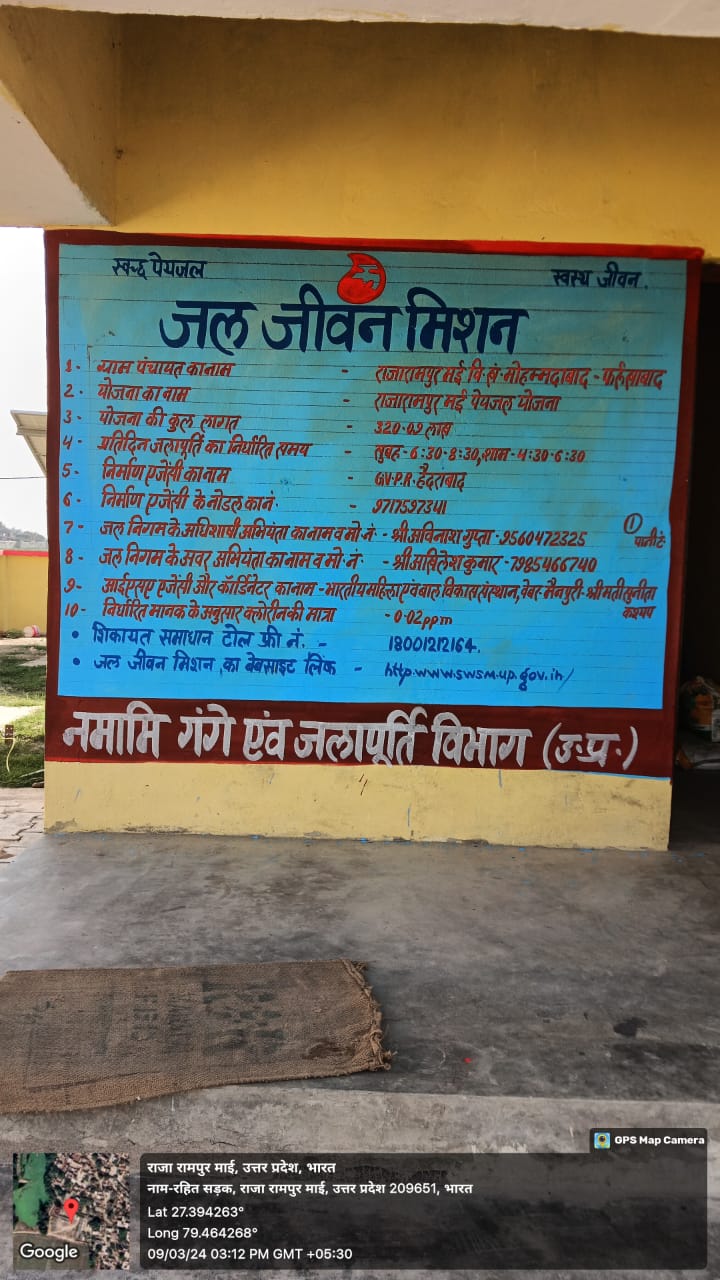 स्वच्छ पेयजल स्वस्थ जीवन.
जल जीवन मिशन
1- ग्राम पंचायत का नाम - राजारामपुर मई वि.खं. मोहम्मदाबाद - फर्रुखाबाद
2- योजना का नाम - राजारामपुर मई पेयजल योजना
3- योजना की कुल लागत - 320.09 लाख
4- प्रतिदिन जलापूर्ति का निर्धारित समय - सुबह-6:30-8:30, शाम-4:30-6:30
5- निर्माण एजेंसी का नाम - GV.P.R. हैदराबाद
6- निर्माण एजेंसी के नोडल का नं. - 9717597341
7- जल निगम के अधिशाषी अभियंता का नाम व मो.नं. - श्री अविनाश गुप्ता - 9560472325
8- जल निगम के अवर अभियंता का नाम व मो.नं. - श्री अखिलेश कुमार - 7985466740
①
9- आईएसए एजेंसी और कॉर्डिनेटर का नाम - भारतीय महिला एवं बाल विकास संस्थान, वेबर-मैनपुरी-श्रीमती सुनीता
कश्यप
10- निर्धारित मानक के अनुसार क्लोरीन की मात्रा - 0.02ppm
• शिकायत समाधान टोल फ्री नं. - 18001212164.
• जल जीवन मिशन का वेबसाइट लिंक - http.www.swsm.up.gov.in/
नमामि गंगे एंव जलापूर्ति विभाग (उ.प्र.)
GPS Map Camera
राजा रामपुर माई, उत्तर प्रदेश, भारत
नाम-रहित सड़क, राजा रामपुर माई, उत्तर प्रदेश 209651, भारत
Lat 27.394263°
Long 79.464268°
09/03/24 03:12 PM GMT +05:30
Google